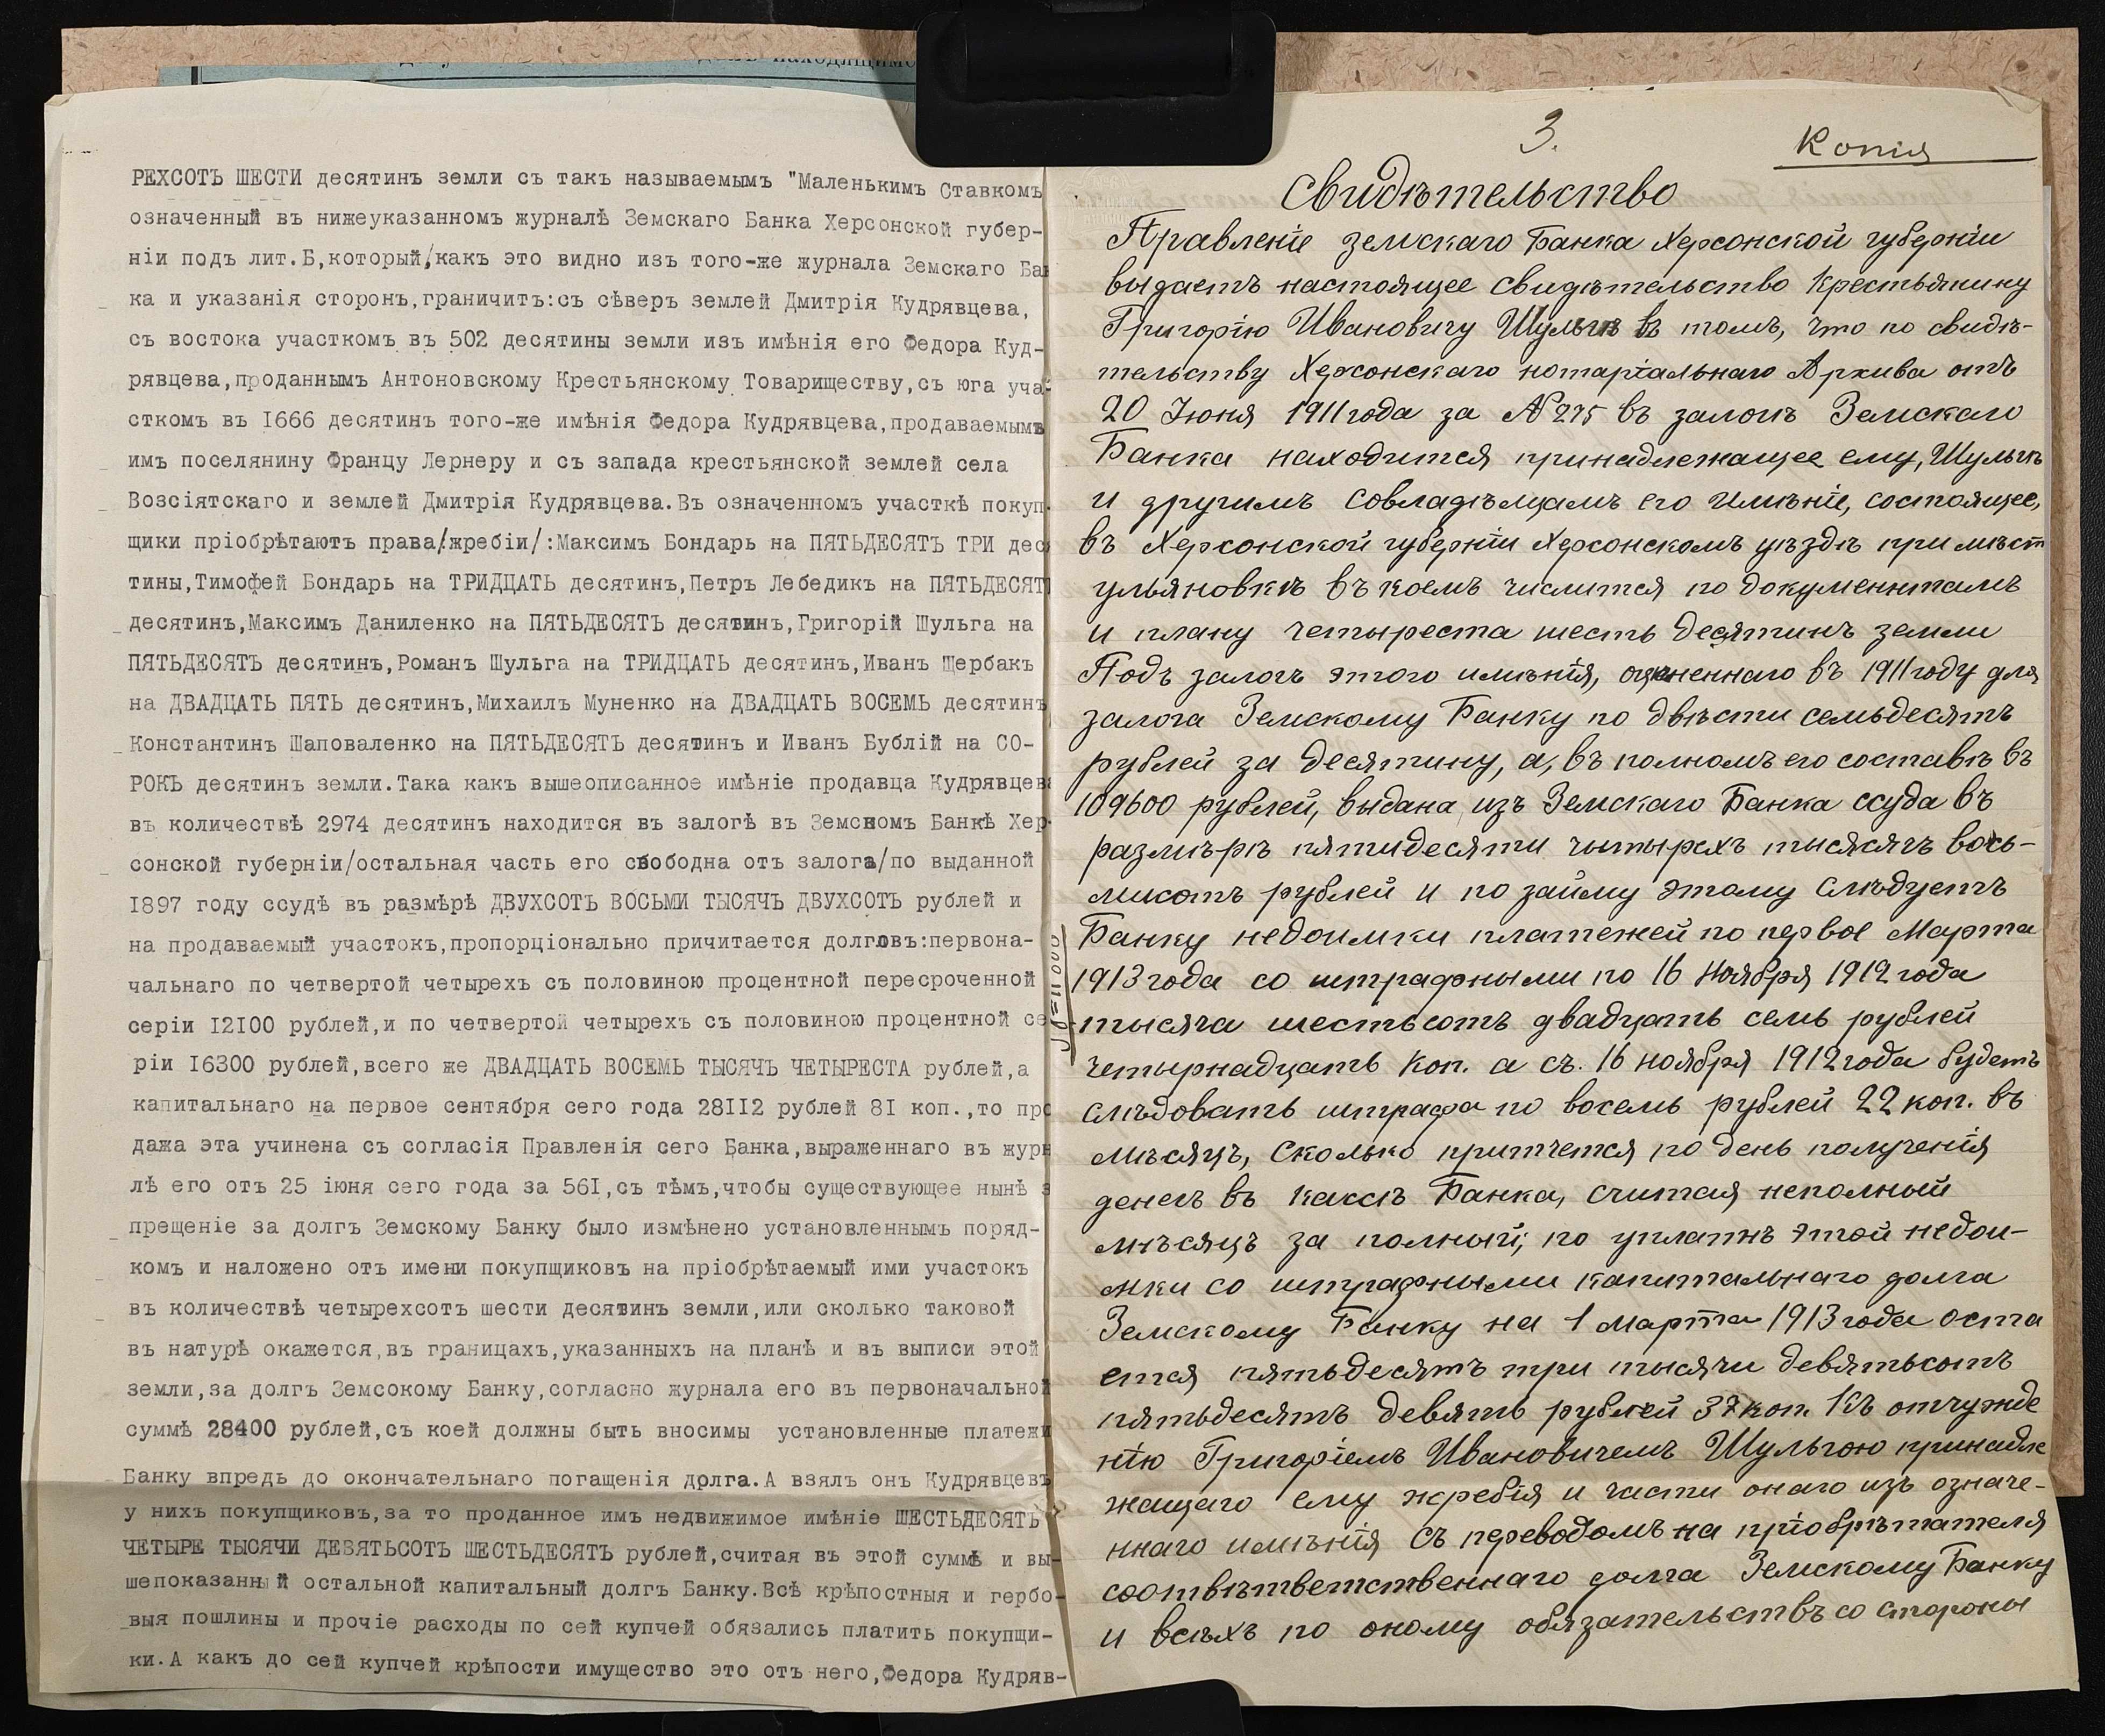 находящимс
РЕХСОТЪ ШЕСТИ десятинъ земли съ такъ называемымъ "Маленькимъ Ставкомъ
означенный въ нижеуказанномъ журналѣ Земскаго Банка Херсонской губер-
ніи подъ лит.Б,который,/какъ это видно изъ того-же журнала Земскаго Бан
ка и указанія сторонъ,граничитъ:съ сѣверъ землей Дмитрія Кудрявцева,
съ востока участкомъ въ 502 десятины земли изъ имѣнія его Федора Куд-
рявцева,проданнымъ Антоновскому Крестьянскому Товариществу,съ юга уча-
сткомъ въ 1666 десятинъ того-же имѣнія Федора Кудрявцева,продаваемымъ
имъ поселянину Францу Лернеру и съ запада крестьянской землей села
Возсіятскаго и землей Дмитрія Кудрявцева.Въ означенномъ участкѣ покуп-
щики пріобрѣтаютъ права/:жребіи/:Максимъ Бондарь на ПЯТЬДЕСЯТЪ ТРИ деся
тины,Тимофей Бондарь на ТРИДЦАТЬ десятинъ,Петръ Лебедикъ на ПЯТЬДЕСЯТЪ
десятинъ,Максимъ Даниленко на ПЯТЬДЕСЯТЪ десятинъ,Григорій Шульга на
ПЯТЬДЕСЯТЪ десятинъ,Романъ Шульга на ТРИДЦАТЬ десятинъ,Иванъ Щербакъ
на ДВАДЦАТЬ ПЯТЬ десятинъ,Михаилъ Муненко на ДВАДЦАТЬ ВОСЕМЬ десятинъ
Константинъ Шаповаленко на ПЯТЬДЕСЯТЪ десятинъ и Иванъ Бублій на СО-
РОКЪ десятинъ земли.Така какъ вышеописанное имѣніе продавца Кудрявцева
въ количествѣ 2974 десятинъ находится въ залогѣ въ Земскомъ Банкѣ Хер-
сонской губерніи/остальная часть его свободна отъ залога/по выданной
1897 году ссудѣ въ размѣрѣ ДВУХСОТЪ ВОСЬМИ ТЫСЯЧЪ ДВУХСОТЪ рублей и
на продаваемый участокъ,пропорціонально причитается долговъ:первона-
чальнаго по четвертой четырехъ съ половиною процентной пересроченной
серіи 12100 рублей,и по четвертой четырехъ съ половиною процентной се
ріи 16300 рублей,всего же ДВАДЦАТЬ ВОСЕМЬ ТЫСЯЧЪ ЧЕТЫРЕСТА рублей,а
капитальнаго на первое сентября сего года 28112 рублей 81 коп.,то про
дажа эта учинена съ согласія Правленія сего Банка,выраженнаго въ журн
лѣ его отъ 25 іюня сего года за 561,съ тѣмъ,чтобы существующее нынѣ з
прещеніе за долгъ Земскому Банку было измѣнено установленнымъ поряд-
комъ и наложено отъ имени покупщиковъ на пріобрѣтаемый ими участокъ
въ количествѣ четырехсотъ шести десятинъ земли,или сколько таковой
въ натурѣ окажется,въ границахъ,указанныхъ на планѣ и въ выписи этой
земли,за долгъ Земсокому Банку,согласно журнала его въ первоначальной
суммѣ 28400 рублей,съ коей должны быть вносимы установленные платежи
Банку впредь до окончательнаго погащенія долга.А взялъ онъ Кудрявцевъ
у нихъ покупщиковъ,за то проданное имъ недвижимое имѣніе ШЕСТЬДЕСЯТЪ
ЧЕТЫРЕ ТЫСЯЧИ ДЕВЯТЬСОТЪ ШЕСТЬДЕСЯТЪ рублей,считая въ этой суммѣ и вы-
шепоказанный остальной капитальный долгъ Банку.Всѣ крѣпостныя и гербо-
выя пошлины и прочіе расходы по сей купчей обязались платить покупщи-
ки.А какъ до сей купчей крѣпости имущество это отъ него,Федора Кудряв-
3.
Копія
Свидѣтельство
Правленіе Земскаго Банка Херсонской губерніи
выдаетъ настоящее свидѣтельство Крестьянину
Григорію Ивановичу Шульгѣ въ томъ, что по свидѣ-
тельству Херсонскаго нотаріальнаго Архива отъ
20 Іюня 1911 года за №275 въ залогѣ Земскаго
Банка находится принадлежащее ему, Шульгѣ
и другимъ совладѣльцамъ его имѣніе, состоящее,
въ Херсонской губерніи Херсонскомъ уѣздѣ при мѣст
ульяновкѣ въ коемъ числится по документамъ
и плану четыреста шесть десятинъ земли
Подъ залогъ этого имѣнія, оцѣненнаго въ 1911 году для
залога Земскому Банку по двѣсти семьдесятъ
рублей за десятину, а, въ полномъ его составѣ въ
109600 рублей, выдана изъ Земскаго Банка ссуда въ
размѣрѣ пятидесяти чытырехъ тысясячъ вось-
мисотъ рублей и по займу этому слѣдуетъ
Банку недоимки платежей по первое Марта
1913 года со штрафными по 16 Ноября 1912 года
тысяча шестьсотъ двадцать семь рублей
четырнадцать коп. а съ. 16 ноября 1912 года будетъ
слѣдовать штрафа по восемь рублей 22 коп. въ
мѣсяцъ, сколько притчется по день полученія
денегъ въ кассѣ Банка, считая неполный
мѣсяцъ за полный; по уплатѣ этой недои-
мки со штрафными капитальнаго долга
Земскому Банку на 1 марта 1913 года оста
ется пятьдесятъ три тысячи девятьсотъ
пятьдесятъ девять рублей 37 коп. Къ отчужде
нію Григоріемъ Ивановичемъ Шульгою принадле
жащаго ему жребія и части онаго изъ означе-
ннаго имѣнія съ переводомъ на пріобрѣтателя
соотвѣтветственнаго долга Земскому Банку
и всѣхъ по оному обязательствъ со стороны